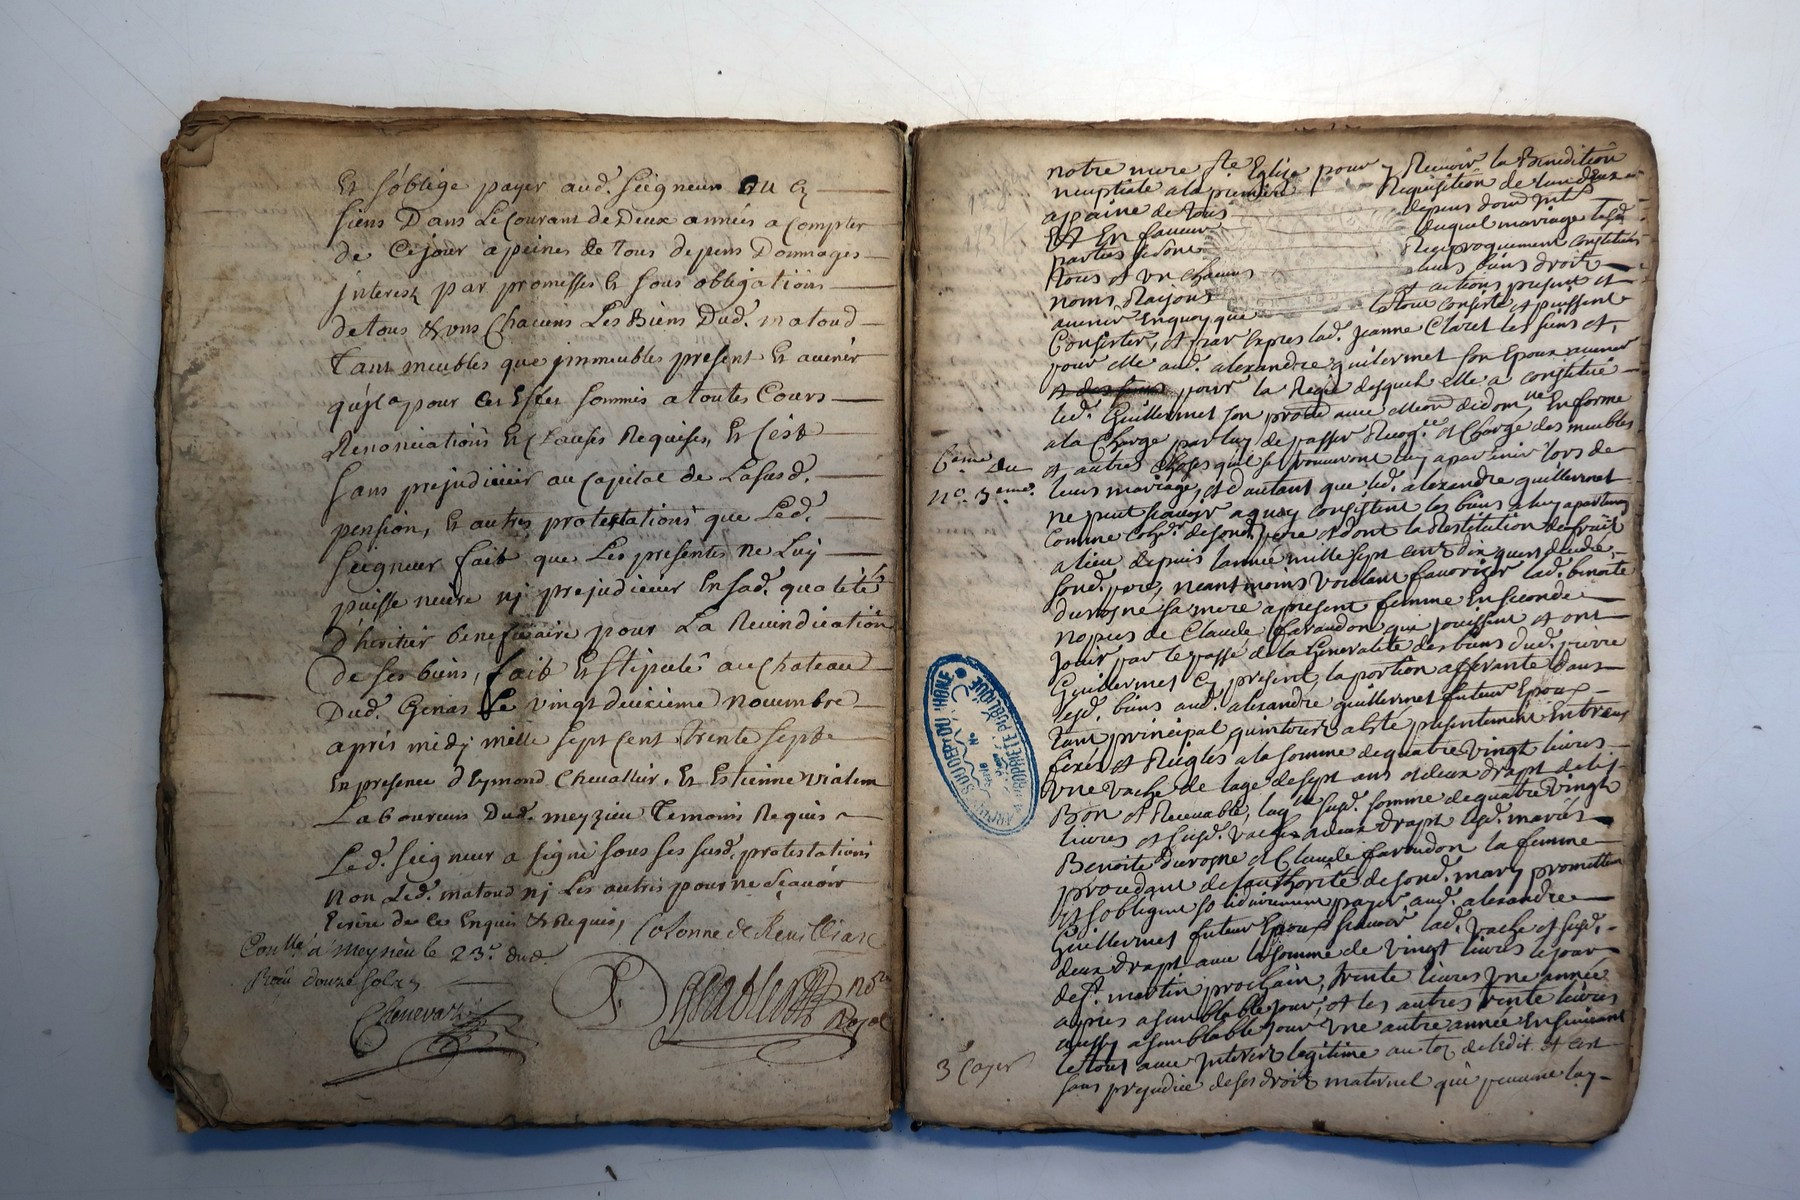 Et s'oblige payer aud. seigneur ou es
siens Dans Le Courant de Deux années a Compter
de Cejour a peines de tous depens Dommages
jnterest par promesses et sous obligations
de tous & uns Chacuns Les Biens Dud. matoud
Tant meubles que jmmeubles present Et avenir
qu'jl a pour Cet Effet sommis a toutes Cours
Renonciations Et Clauses Requises, Et C'est
sans prejudicier au Capital de Lasusd.
pension, Et autres protestations que Led.
seigneur fait que Les presentes ne Luy
puisse neuire nj prejudicier En sad. qualité
D'heritier beneficiaire pour La Revindication
de ses biens, fait Et stipulé au Chateau
Dud. Genas Le vingt deuxieme novembre
apres midy mille sept Cent trente sept
En presence d'Eymond Chevallier, Et Estienne vialem
Laboureurs Dud. meyzieu Temoins Requis
Led. seigneur a signé sous ses susd. protestations
non Led. matoud nj Les autres pour ne sçavoir
Ecrire de ce Enquis & Requis,
Conllé a Meyzieu le 23e. dud.
Receu douze sols
notre mere ste Eglise pour y Recevoir la Benedition
neuptiale a la premiere Requisition de lun deux
a paine de tous depens dom jnts
Et En faveur duquel mariage lesd.
parties se sont Reciproquement Constitués
tous et un chacuns leurs biens droits
noms Raisons et actions present et
avenir En quoy que le tout consiste et puissent
Consister, et par Exprés lad. Jeanne Claret les siens et,
pour elle aud. alexandre guillermet son Epoux avenir
pour la Regie desquels elle a constitué
led. Guillermet son procur avec Election de domlle En forme
a la Charge par luy de passer Recoge et Charge des meubles
et autres choses quil se trouveront luy apartenir lors de
leurs mariage, et d'autant que led. alexandre guillermet
ne peut scavoir a quoy consistent les biens a luy apartenant
Comme de sond. pere et dont la Restitution de fruits
a lieu depuis lannée mille sept cent dix
sond. pere, neantmoins voulant favoriser lad. benoite
sa mere a present femme En seconde
nopces de Claude favaudon qui jouissent et ont
joüir par le passé de la Generalité des biens dud. pierre
Guillermet Cy present, la portion afferante dans
lesd. biens aud. alexandre guillermet futeur Epoux
tant principal qu'interest a été presentement Entreux
fixés et Reiglés a la somme de quatre vingt livres
une vache de lage de sept ans et deux drapt de lit
Bon et Recevable, laqlle susd. somme de quatre vingt
livres et susd. vache et deux drapt lesd. mariés
Benoite et Claude favaudon la femme
procedant de l'authorité de sond. mary promettent
et s'obligent solidairement payer aud. alexandre
Guillermet futeur Epoux scavoir lad. vache et susd.
deux drapt avec la somme de vingt livres le jour
de st. martin prochain, trente livres une année
apres a semblable jour, et les autres trente livres
aussy a semblable jour une autre année En suivant
le tout avec jnterest legitime au taux de l'edit et c'est
sans prejudice de ses droit maternel qui peuvent luy
6eme du
no. 3eme.
3e Cayer
PROPRIÉTÉ PUBLIQUE